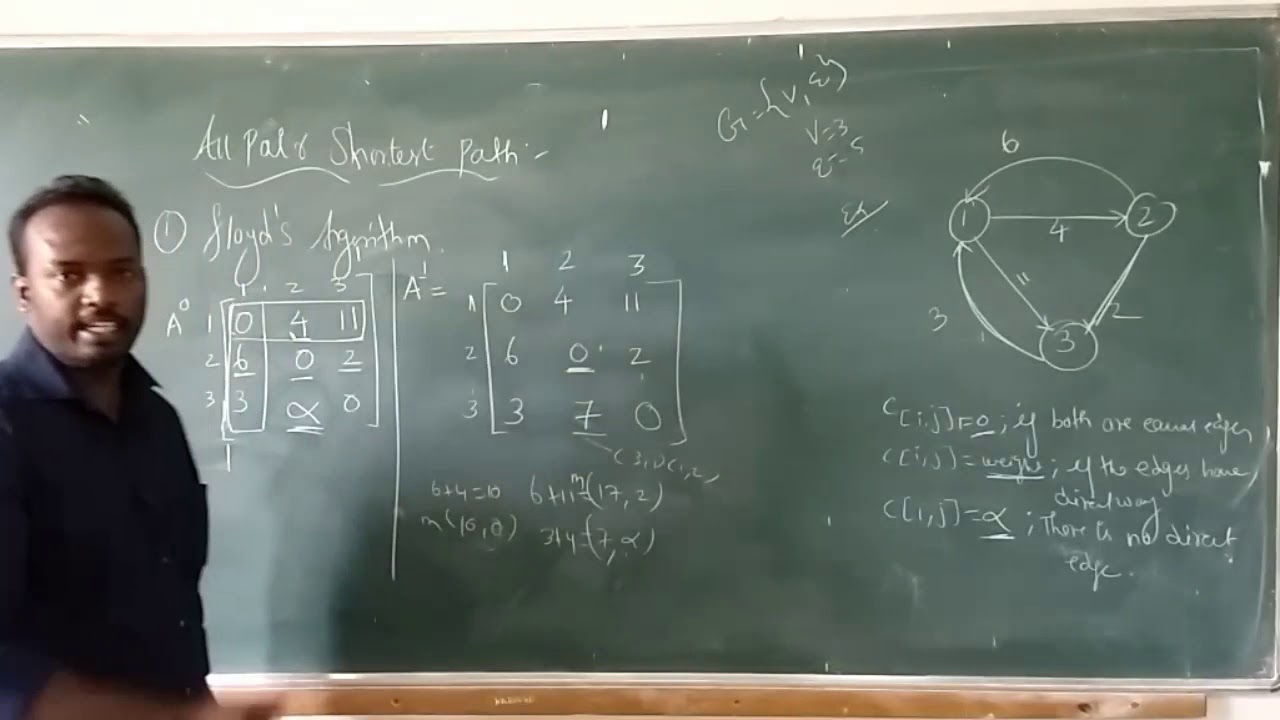 All Pair Shortest Path:-
① Floyd's Algorithm
G={V,E}
V=3
E=5
Ex
A⁰
1 2 3
1 0 4 11
2 6 0 2
3 3 α 0
A¹=
1 2 3
1 0 4 11
2 6 0 2
3 3 7 0
(3,1)(1,2)
6+4=10
m(10,0)
6+11=m(17,2)
3+4=(7,α)
6
1 2
4
11
3 2
3
C[i,j]=0; if both are equal edges
C[i,j]=weight; if the edges have
direct way
C[i,j]=α; There is no direct
edge.